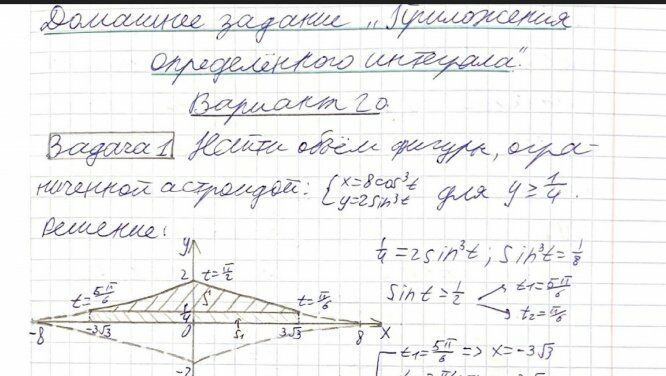 Домашнее задание „Приложения
определённого интеграла".
Вариант 20.
Задача 1 Найти объём фигуры, огра-
ниченной астроидой: { x=8cos³t y=2sin³t для y ≥ 1/4.
Решение:
y
1/4 = 2sin³t; sin³t = 1/8
2 t=π/2
sin t = 1/2 t₁=5π/6 t₂=π/6
t=5π/6 S t=π/6
1/4
-8 -3√3 0 S₁ 3√3 8 x
t₁=5π/6 => x=-3√3
-2